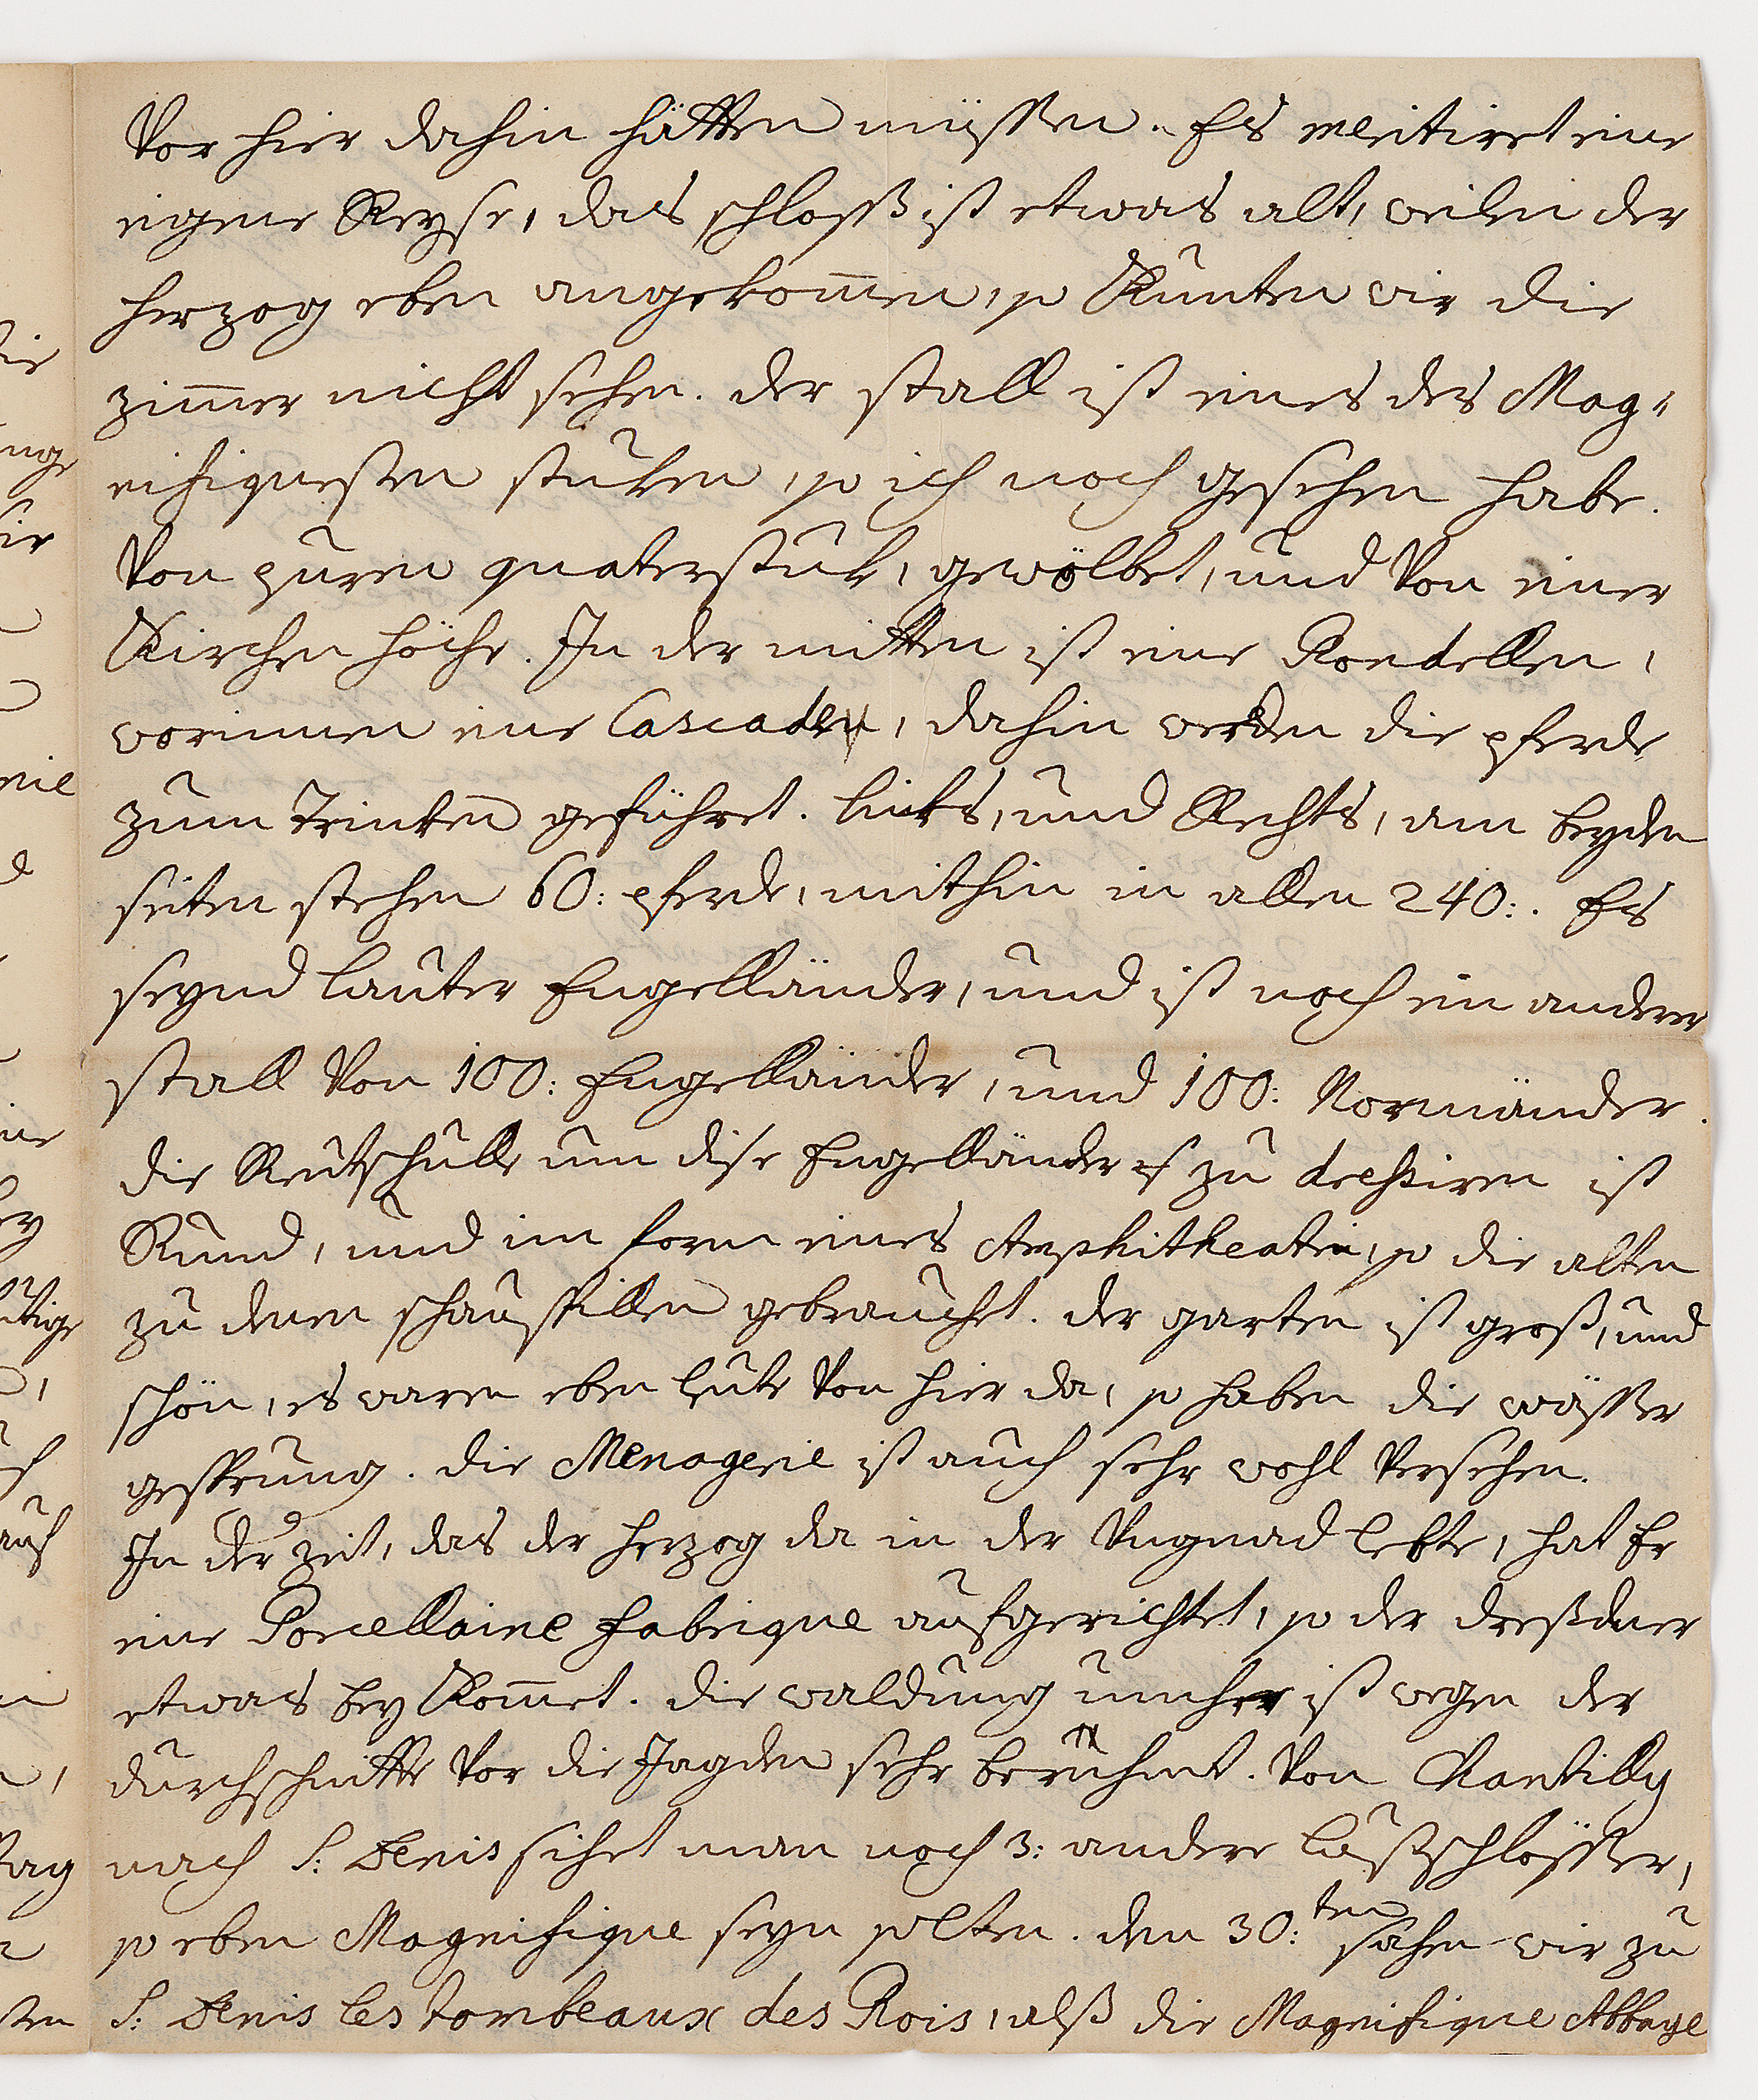 Vor hier dahin hätten müssen. Es meritiret eine
eigene Reyse, das schloß ist etwas alt, weilen der
herzog eben angekom̅en, so Kunten wir die
zim̅er nicht sehen. der stall ist eines des Mag-
nifiquesten stuken, so ich noch gesehen habe.
Von puren quaterstuk, gewölbet, und Von einer
Kirchen höche. In der mitten ist eine Rondellen,
worinnen eine Cascaden, dahin werden die pferde
zum Trinken geführet. links, und Rechts, am beyden
seiten stehen 60: pferde, mithin in allen 240:. Es
seynd lauter Engelländer, und ist noch ein anderer
stall Von 100: Engelländer, und 100: Normänder.
die Reitschulle um dise Engelländer zu dressiren ist
Rund, und im form eines Amphitheatri, so die alten
zu denen schauspillen gebrauchet. der garten ist groß, und
schön, es waren eben leute Von hier da, so haben die wässer
gesprung. die Menagerie ist auch sehr wohl Versehen.
In der zeit, das der herzog da in der Ungnad lebte, hat Er
eine Porcellaine fabrique aufgerichtet, so der dreßdner
etwas bey Kom̅et. die waldung umher ist wegen der
durchschnitte Vor die Jagden sehr berühmt. Von Chantilly
nach S: Denis sihet man noch 3: andere lustschlösser,
so eben Magnifique seyn solten. den 30:ten sahen wir zu
S: Denis les tombeaux des Rois, alß die Magnifique Abbaye